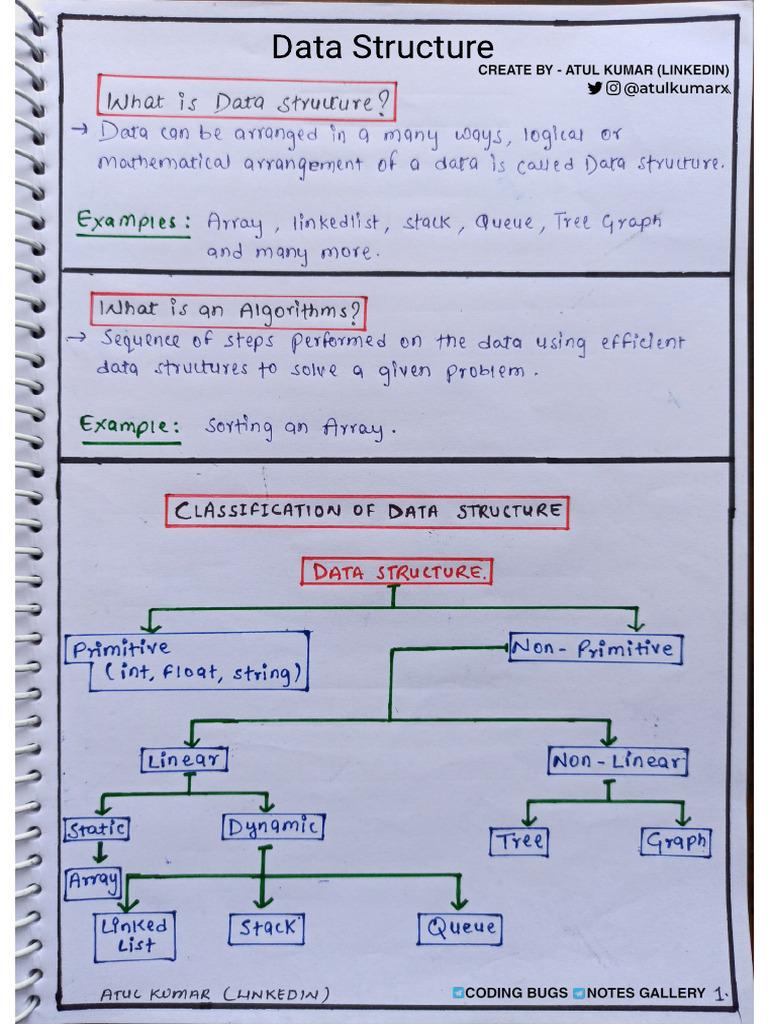 Data Structure
CREATE BY - ATUL KUMAR (LINKEDIN)
@atulkumarx
What is Data structure?
→ Data can be arranged in a many ways, logical or
mathematical arrangement of a data is called Data structure.
Examples: Array, linkedlist, stack, Queue, Tree Graph
and many more.
What is an Algorithms?
→ Sequence of steps performed on the data using efficient
data structures to solve a given problem.
Example: Sorting an Array.
CLASSIFICATION OF DATA STRUCTURE
DATA STRUCTURE.
Primitive
(int, float, string)
Non-Primitive
Linear
Non-Linear
Static
Dynamic
Tree
Graph
Array
Linked
List
Stack
Queue
ATUL KUMAR (LINKEDIN)
CODING BUGS NOTES GALLERY 1.